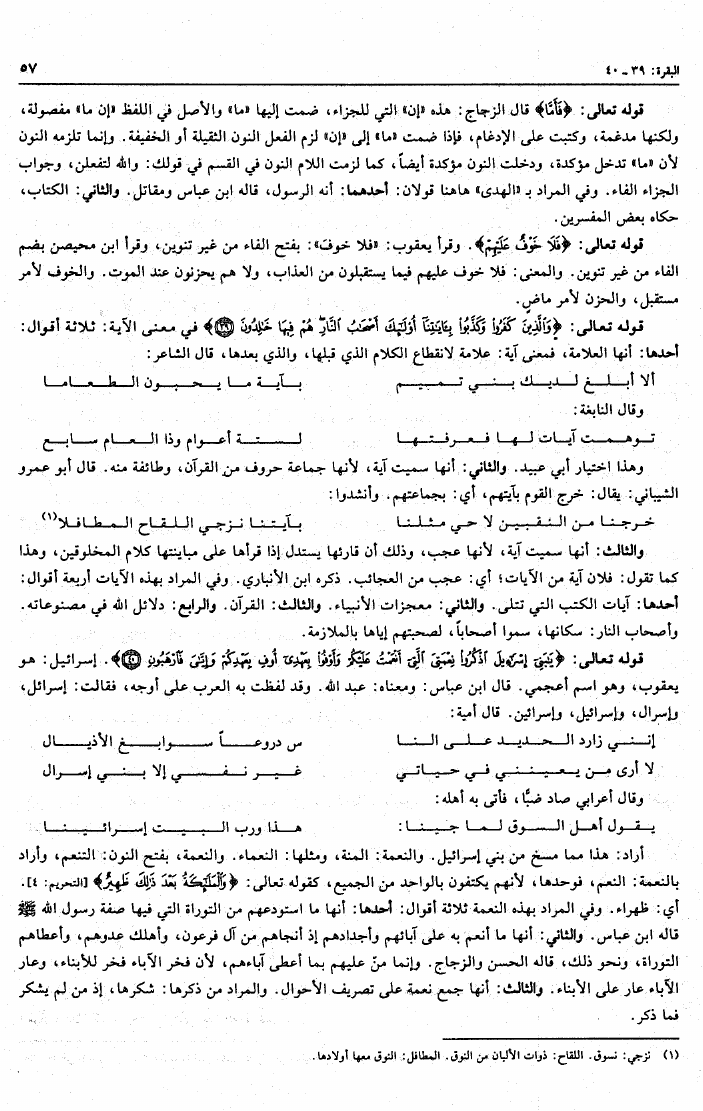 البقرة: ٣٩ ـ ٤٠ ٥٧
قوله تعالى: ﴿فَأَمَّا﴾ قال الزجاج: هذه «إن» التي للجزاء، ضمت إليها «ما» والأصل في اللفظ «إن ما» مفصولة،
ولكنها مدغمة، وكتبت على الإدغام، فإذا ضمت «ما» إلى «إن» لزم الفعل النون الثقيلة أو الخفيفة. وإنما تلزمه النون
لأن «ما» تدخل مؤكدة، ودخلت النون مؤكدة أيضاً، كما لزمت اللام النون في القسم في قولك: والله لتفعلن، وجواب
الجزاء الفاء. وفي المراد بـ «الهدى» هاهنا قولان: أحدهما: أنه الرسول، قاله ابن عباس ومقاتل. والثاني: الكتاب،
حكاه بعض المفسرين.
قوله تعالى: ﴿فَلَا خَوْفٌ عَلَيْهِمْ﴾. وقرأ يعقوب: «فلا خوفَ»: بفتح الفاء من غير تنوين، وقرأ ابن محيصن بضم
الفاء من غير تنوين. والمعنى: فلا خوف عليهم فيما يستقبلون من العذاب، ولا هم يحزنون عند الموت. والخوف لأمر
مستقبل، والحزن لأمر ماضٍ.
قوله تعالى: ﴿وَالَّذِينَ كَفَرُوا وَكَذَّبُوا بِآيَاتِنَا أُولَٰئِكَ أَصْحَابُ النَّارِ هُمْ فِيهَا خَالِدُونَ ٣٩﴾ في معنى الآية: ثلاثة أقوال:
أحدها: أنها العلامة، فمعنى آية: علامة لانقطاع الكلام الذي قبلها، والذي بعدها، قال الشاعر:
ألا أبلغ لديك بني تميم بآية ما يحبون الطعاما
وقال النابغة:
توهمت آيات لها فعرفتها لستة أعوام وذا العام سابع
وهذا اختيار أبي عبيد. والثاني: أنها سميت آية، لأنها جماعة حروف من القرآن، وطائفة منه. قال أبو عمرو
الشيباني: يقال: خرج القوم بآيتهم، أي: بجماعتهم. وأنشدوا:
خرجنا من النقبين لا حي مثلنا بآيتنا نزجي اللقاح المطافلا(١)
والثالث: أنها سميت آية، لأنها عجب، وذلك أن قارئها يستدل إذا قرأها على مباينتها كلام المخلوقين، وهذا
كما تقول: فلان آية من الآيات؛ أي: عجب من العجائب. ذكره ابن الأنباري. وفي المراد بهذه الآيات أربعة أقوال:
أحدها: آيات الكتب التي تتلى. والثاني: معجزات الأنبياء. والثالث: القرآن. والرابع: دلائل الله في مصنوعاته.
وأصحاب النار: سكانها، سموا أصحاباً، لصحبتهم إياها بالملازمة.
قوله تعالى: ﴿يَا بَنِي إِسْرَائِيلَ اذْكُرُوا نِعْمَتِيَ الَّتِي أَنْعَمْتُ عَلَيْكُمْ وَأَوْفُوا بِعَهْدِي أُوفِ بِعَهْدِكُمْ وَإِيَّايَ فَارْهَبُونِ ٤٠﴾. إسرائيل: هو
يعقوب، وهو اسم أعجمي. قال ابن عباس: ومعناه: عبد الله. وقد لفظت به العرب على أوجه، فقالت: إسرائل،
وإسرال، وإسرائيل، وإسرائين. قال أمية:
إنني زارد الحديد على النا س دروعاً سوابغ الأذيال
لا أرى من يعينني في حياتي غير نفسي إلا بني إسرال
وقال أعرابي صاد ضبًّا، فأتى به أهله:
يقول أهل السوق لما جينا: هذا ورب البيت إسرائينا
أراد: هذا مما مسخ من بني إسرائيل. والنعمة: المنة، ومثلها: النعماء. والنعمة، بفتح النون: التنعم، وأراد
بالنعمة: النعم، فوحدها، لأنهم يكتفون بالواحد من الجميع، كقوله تعالى: ﴿وَالْمَلَائِكَةُ بَعْدَ ذَٰلِكَ ظَهِيرٌ﴾ [التحريم: ٤].
أي: ظهراء. وفي المراد بهذه النعمة ثلاثة أقوال: أحدها: أنها ما استودعهم من التوراة التي فيها صفة رسول الله ﷺ
قاله ابن عباس. والثاني: أنها ما أنعم به على آبائهم وأجدادهم إذ أنجاهم من آل فرعون، وأهلك عدوهم، وأعطاهم
التوراة، ونحو ذلك، قاله الحسن والزجاج. وإنما منّ عليهم بما أعطى آباءهم، لأن فخر الآباء فخر للأبناء، وعار
الآباء عار على الأبناء. والثالث: أنها جمع نعمة على تصريف الأحوال. والمراد من ذكرها: شكرها، إذ من لم يشكر
فما ذكر.
(١) نزجي: نسوق. اللقاح: ذوات الألبان من النوق. المطافل: النوق معها أولادها.